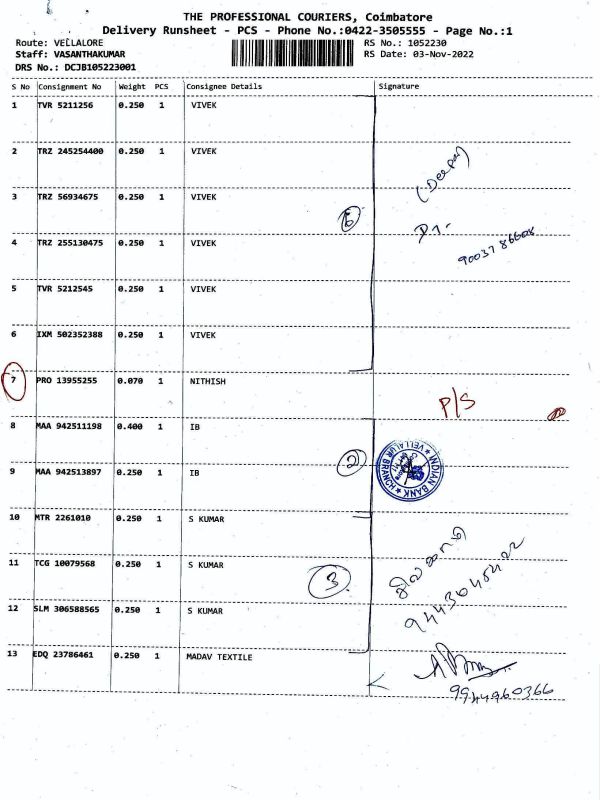 THE PROFESSIONAL COURIERS, Coimbatore
Delivery Runsheet - PCS - Phone No.:0422-3505555 - Page No.:1
Route: VELLALORE
RS No.: 1052230
Staff: VASANTHAKUMAR
RS Date: 03-Nov-2022
DRS No.: DCJB105223001
S No Consignment No Weight PCS Consignee Details Signature
1 TVR 5211256 0.250 1 VIVEK
2 TRZ 245254400 0.250 1 VIVEK
(Deepa)
3 TRZ 56934675 0.250 1 VIVEK
6
4 TRZ 255130475 0.250 1 VIVEK
5 TVR 5212545 0.250 1 VIVEK
6 IXM 502352388 0.250 1 VIVEK
7 PRO 13955255 0.070 1 NITHISH
P/S
8 MAA 942511198 0.400 1 IB
2
INDIAN BANK
VELLALUR BRANCH
9 MAA 942513897 0.250 1 IB
10 MTR 2261010 0.250 1 S KUMAR
11 TCG 10079568 0.250 1 S KUMAR
3
12 SLM 306588565 0.250 1 S KUMAR
13 EDQ 23786461 0.250 1 MADAV TEXTILE
9944960366